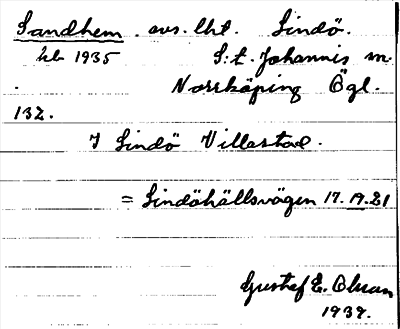 Sandhem. avs. lht. Lindö.
hl. 1935 S:t. Johannis m.
. Norrköping Ögl.
132.
I Lindö Villastad.
= Lindöhällsvägen 17.19.21
Gustaf E. Olsson
1939.